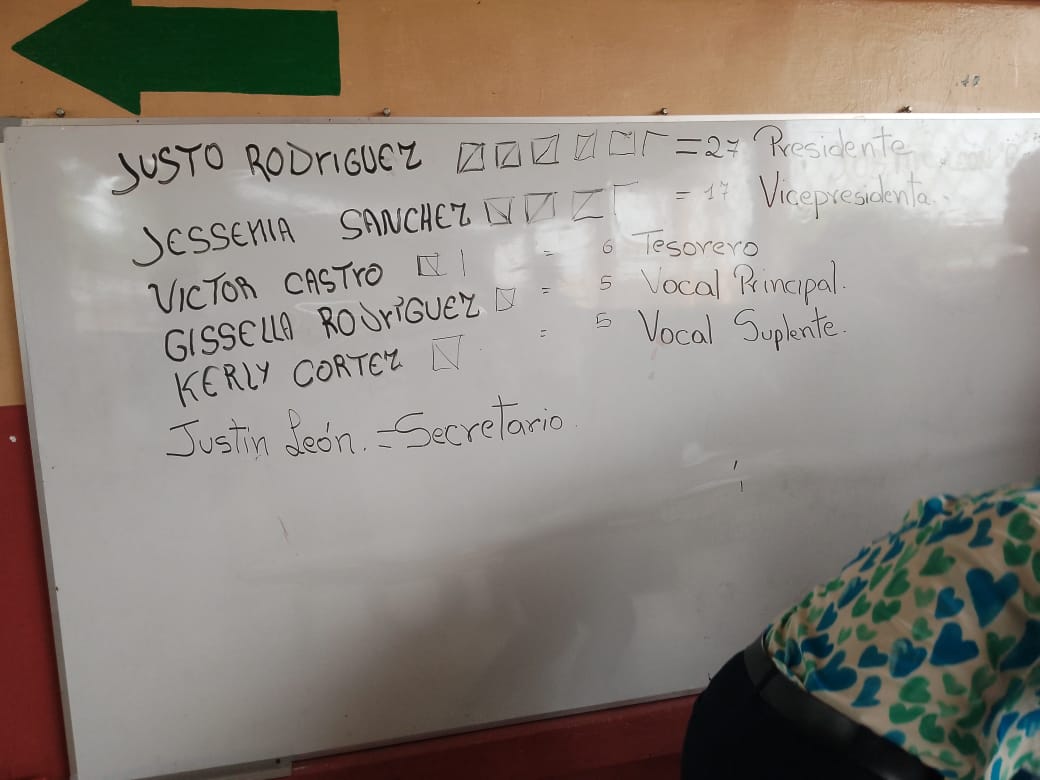 JUSTO RODRIGUEZ = 27 Presidente
JESSENIA SANCHEZ = 17 Vicepresidenta.
VICTOR CASTRO = 6 Tesorero
GISSELLA RODRÍGUEZ = 5 Vocal Principal.
KERLY CORTEZ = 5 Vocal Suplente.
Justin León. = Secretario.